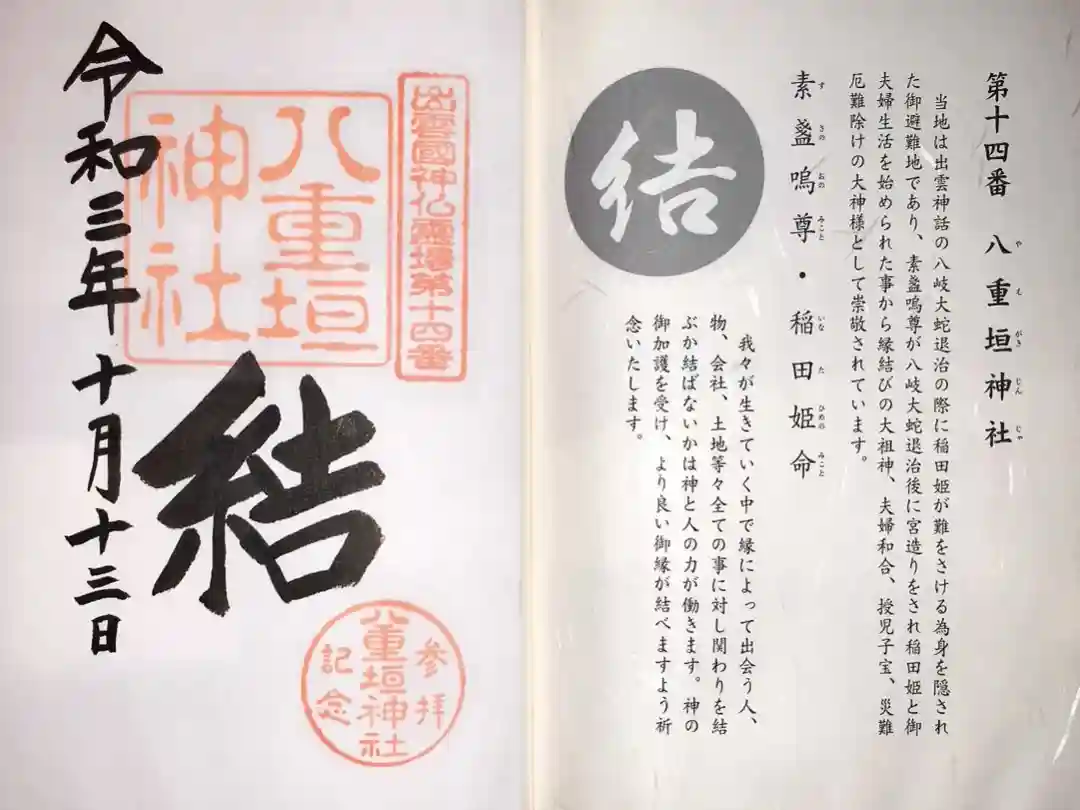 第十四番 八重垣神社
やえがきじんじゃ
当地は出雲神話の八岐大蛇退治の際に稲田姫が難をさける為身を隠され
た御避難地であり、素盞嗚尊が八岐大蛇退治後に宮造りをされ稲田姫と御
夫婦生活を始められた事から縁結びの大祖神、夫婦和合、授児子宝、災難
厄難除けの大神様として崇敬されています。
素盞嗚尊・稲田姫命
すさのおのみこと いなたひめのみこと
結
我々が生きていく中で縁によって出会う人、
物、会社、土地等々全ての事に対し関わりを結
ぶか結ばないかは神と人の力が働きます。神の
御加護を受け、より良い御縁が結べますよう祈
念いたします。
出雲國神仏霊場第十四番
八重垣
神社
結
令和三年十月十三日
参拝
八重垣神社
記念